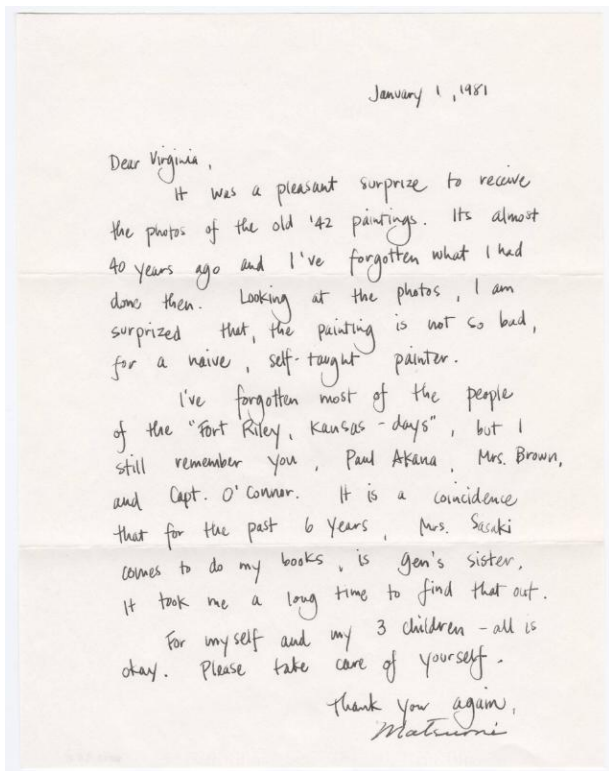 January 1, 1981
Dear Virginia,
It was a pleasant surprize to receive
the photos of the old '42 paintings. Its almost
40 years ago and I've forgotten what I had
done then. Looking at the photos, I am
surprized that, the painting is not so bad,
for a naive, self-taught painter.
I've forgotten most of the people
of the "Fort Riley, Kansas-days", but I
still remember you, Paul Akana, Mrs. Brown,
and Capt. O'Connor. It is a coincidence
that for the past 6 years, Mrs. Sasaki
comes to do my books, is Gen's sister.
It took me a long time to find that out.
For myself and my 3 children - all is
okay. Please take care of yourself.
Thank you again,
Matsumi